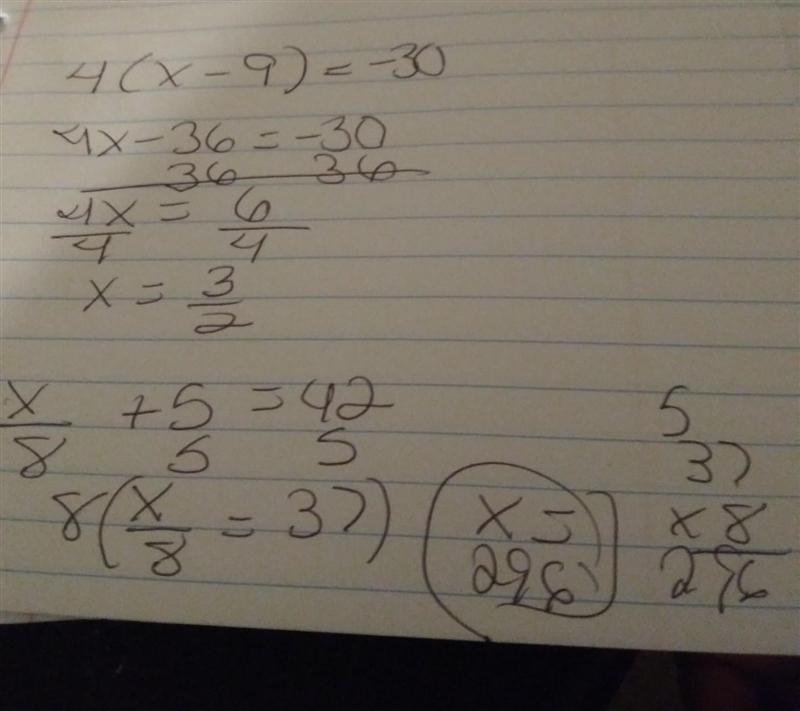 4(x - 9) = -30
4x - 36 = -30
36 36
4x/4 = 6/4
x = 3/2
x/8 + 5 = 42
5 5
8(x/8 = 37)
x =
296
5
37
x 8
296